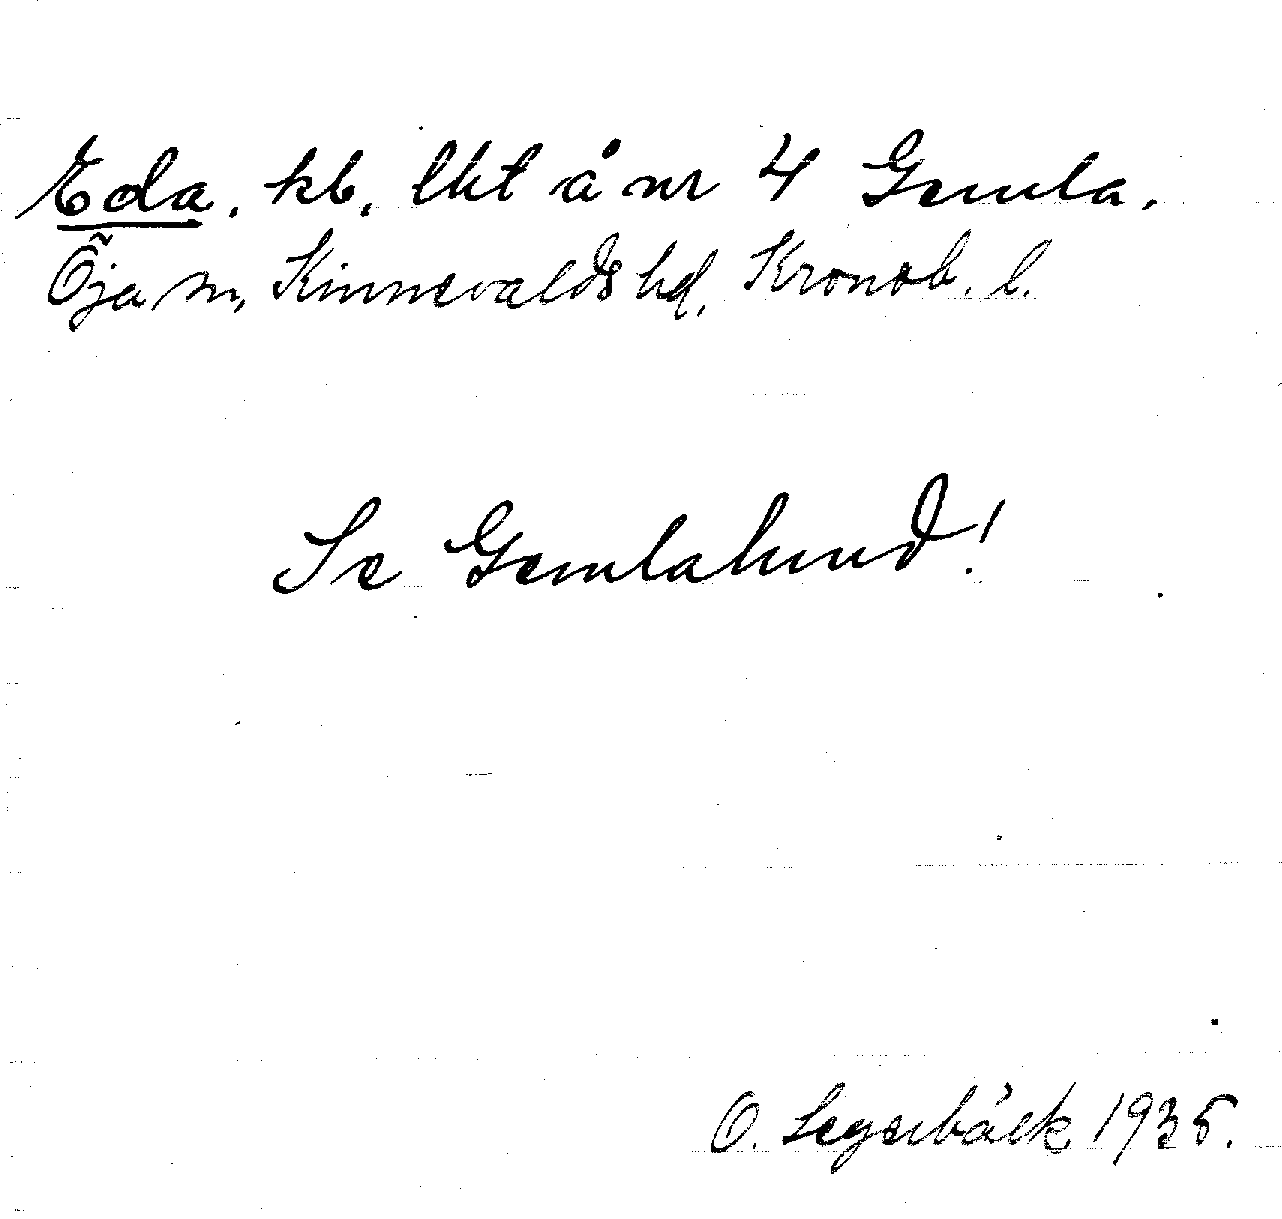 Eda, kb. lht å nr 4 Gemla.
Öja sn, Kinnevalds hd, Kronob. l.
Se Gemlalund!
O. Segerbäck 1935.